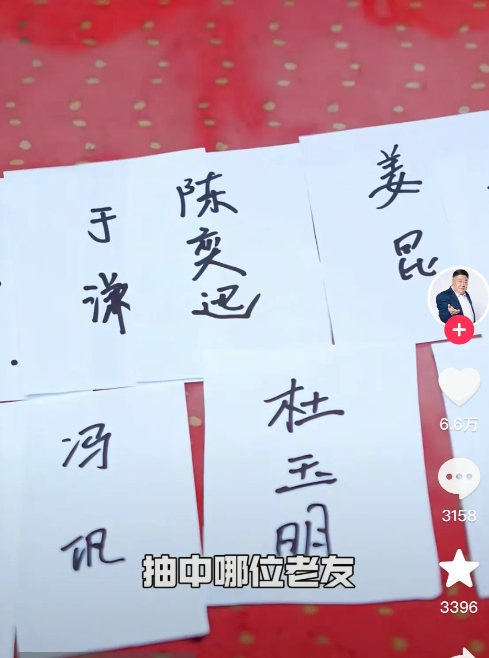 于谦
陈奕迅
姜昆
冯巩
杜玉明
抽中哪位老友
6.6万
3158
3396